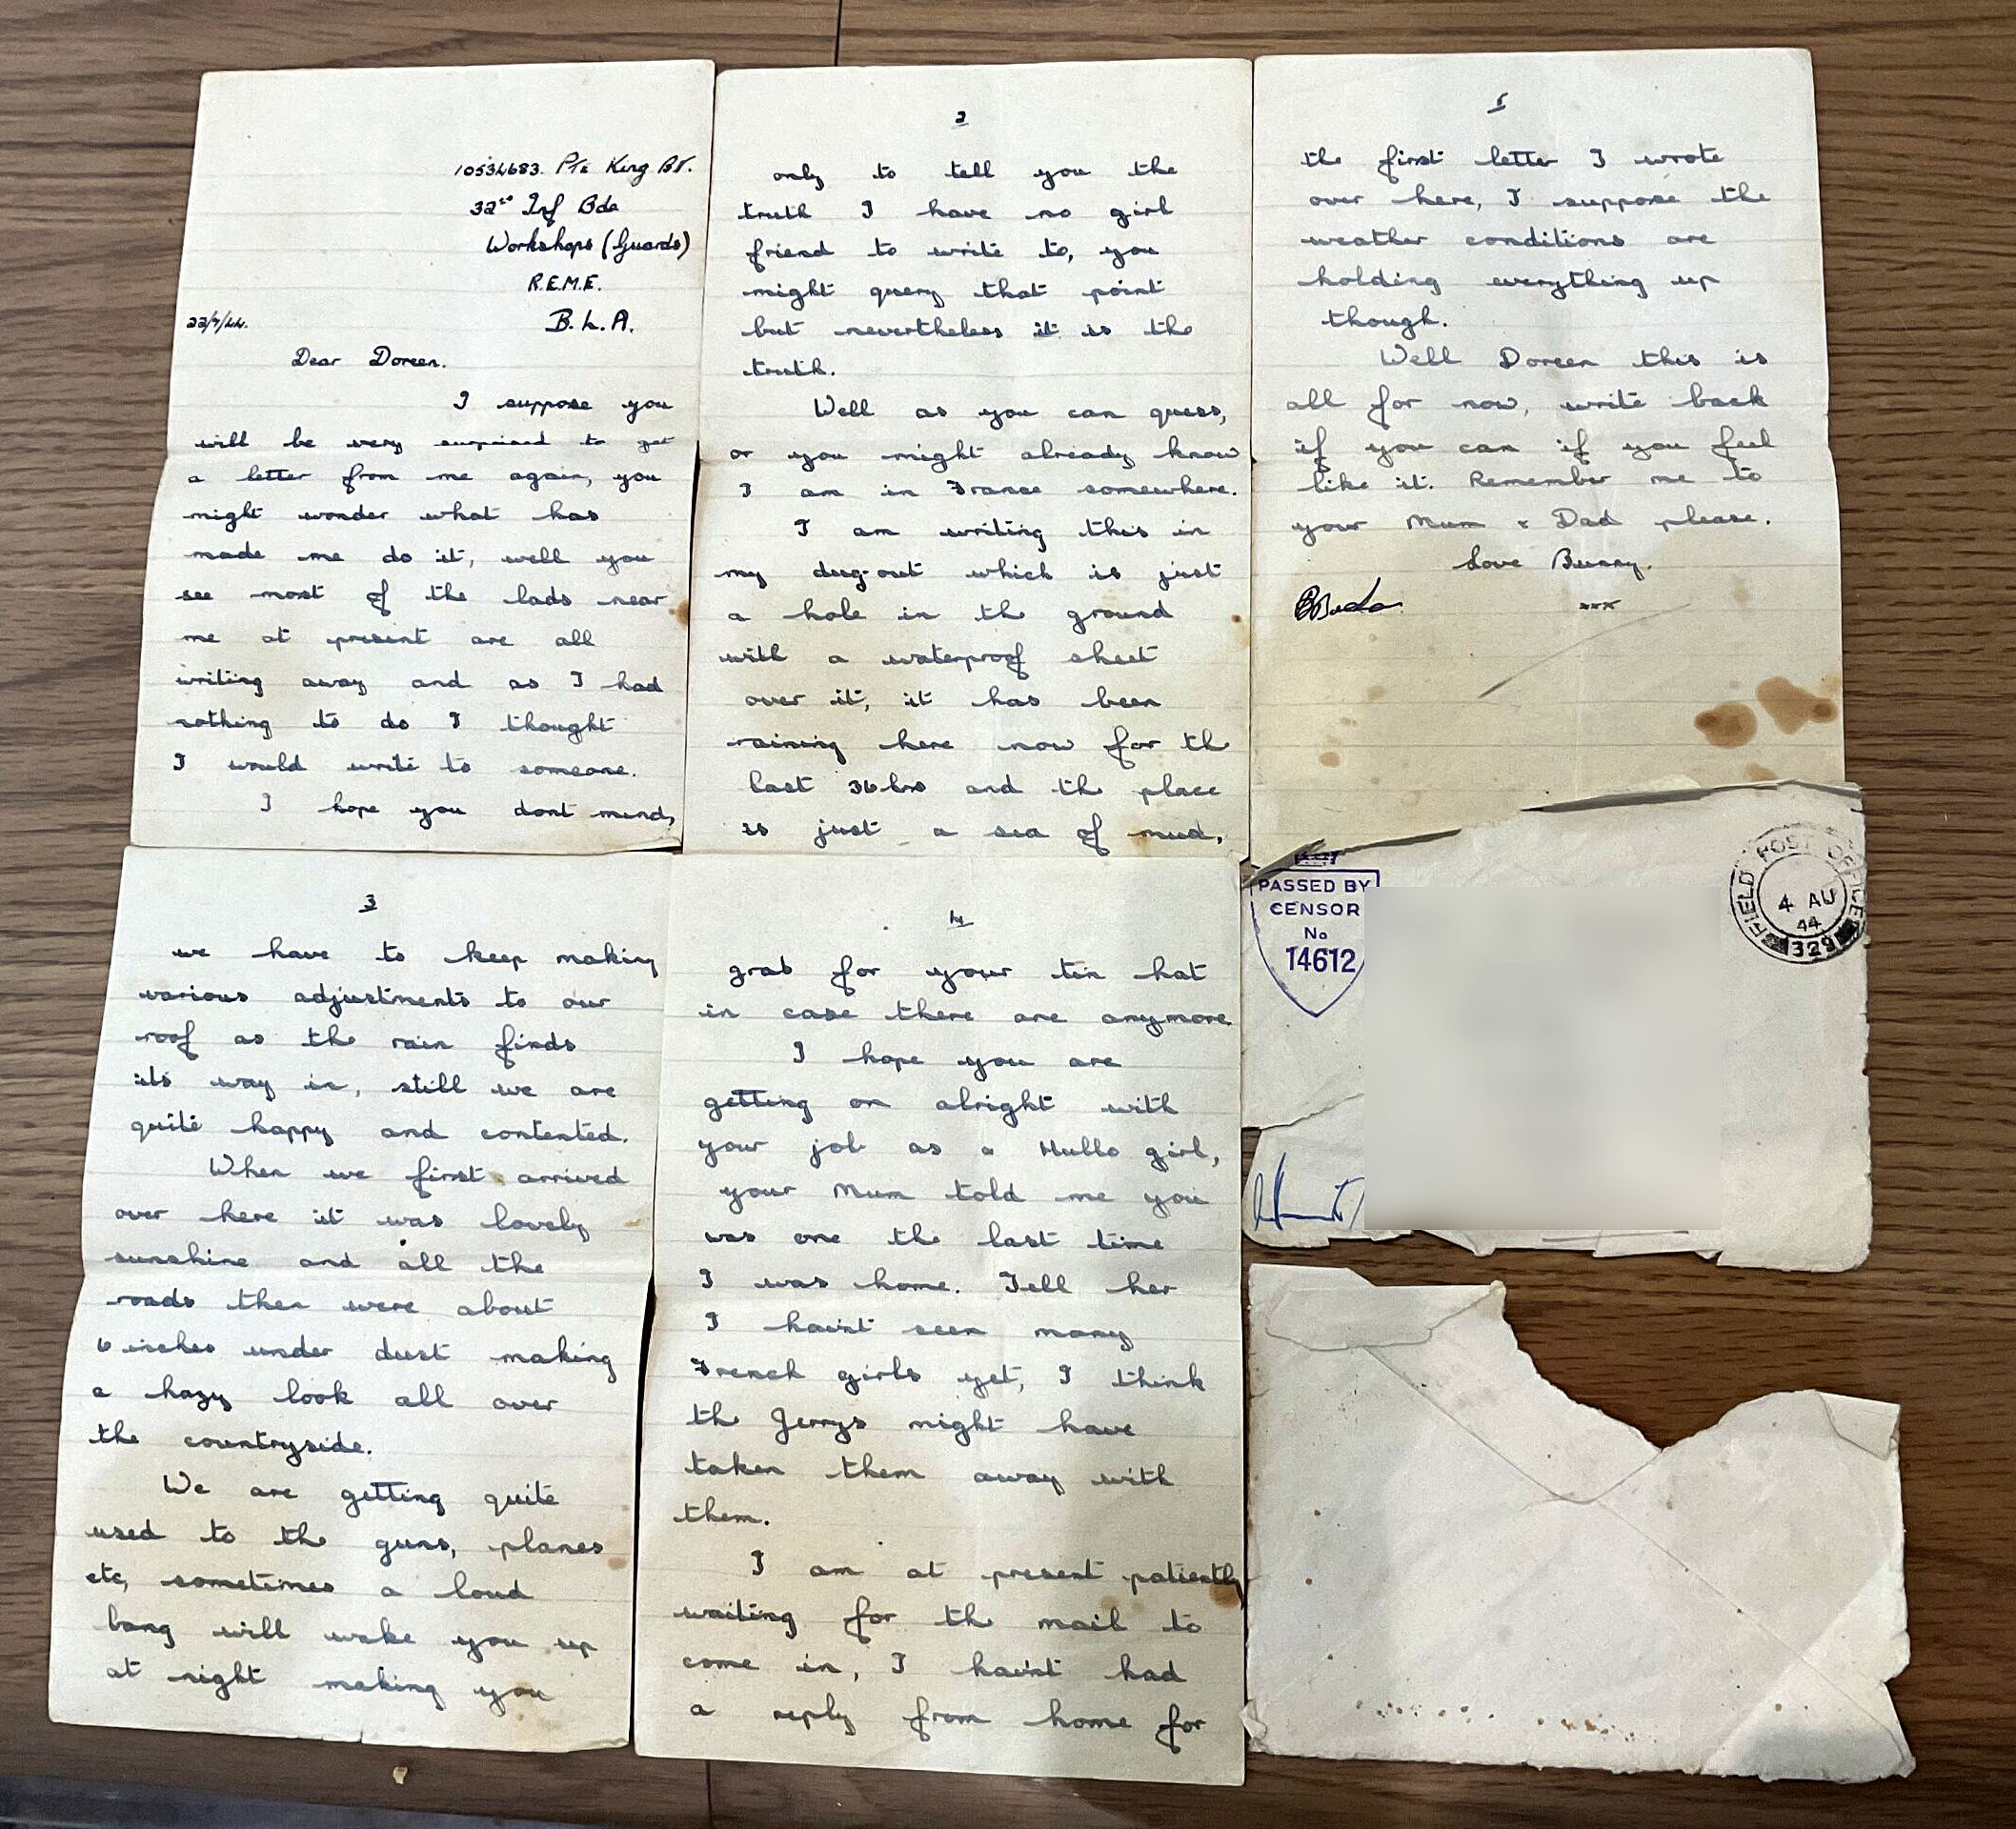 10534683. Pte King BT.
32nd Inf Bde
Workshops (Guards)
R.E.M.E.
22/7/44. B.L.A.
Dear Doreen.
I suppose you
will be very surprised to get
a letter from me again, you
might wonder what has
made me do it, well you
see most of the lads near
me at present are all
writing away and as I had
nothing to do I thought
I would write to someone.
I hope you dont mind,
2
only to tell you the
truth I have no girl
friend to write to, you
might query that point
but nevertheless it is the
truth.
Well as you can guess,
or you might already know
I am in France somewhere.
I am writing this in
my dug-out which is just
a hole in the ground
with a waterproof sheet
over it, it has been
raining here now for the
last 36 hrs and the place
is just a sea of mud,
3
we have to keep making
various adjustments to our
roof as the rain finds
its way in, still we are
quite happy and contented.
When we first arrived
over here it was lovely
sunshine and all the
roads then were about
6 inches under dust making
a hazy look all over
the countryside.
We are getting quite
used to the guns, planes
etc, sometimes a loud
bang will wake you up
at night making you
4
grab for your tin hat
in case there are anymore.
I hope you are
getting on alright with
your job as a Hullo girl,
your Mum told me you
was one the last time
I was home. Tell her
I havint seen many
French girls yet, I think
the Jerrys might have
taken them away with
them.
I am at present patiently
waiting for the mail to
come in, I havint had
a reply from home for
5
the first letter I wrote
over here, I suppose the
weather conditions are
holding everything up
though.
Well Doreen this is
all for now, write back
if you can if you feel
like it. Remember me to
your Mum & Dad please.
Love Bunny.
xxx
PASSED BY
CENSOR
No
14612
FIELD POST OFFICE
4 AU
44
329